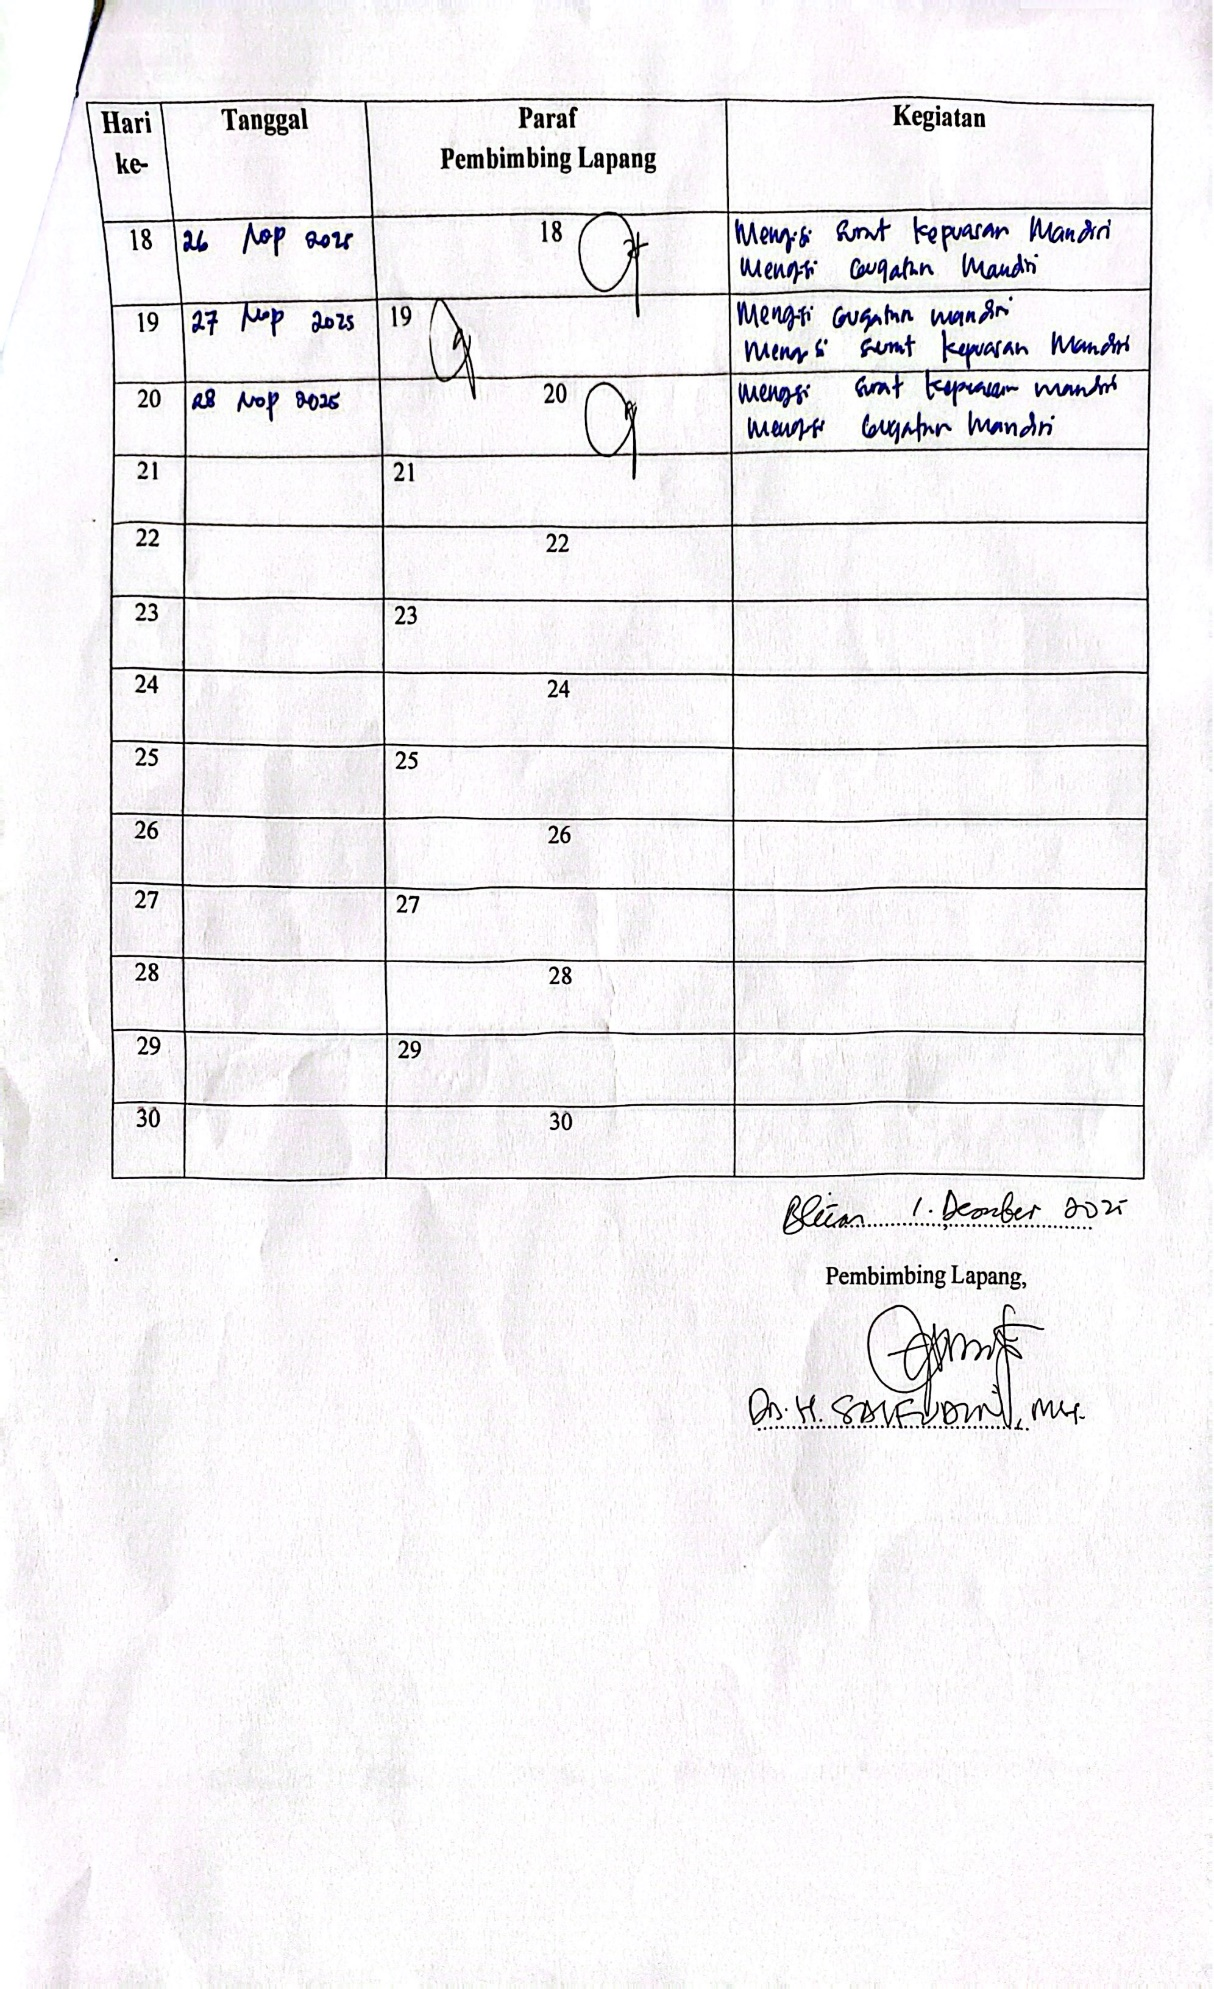 Hari ke-
Tanggal
Paraf
Pembimbing Lapang
Kegiatan
18
26 Nop 2025
18
Mengisi Surat Kepuasan Mandiri
Mengisi Gugatan Mandiri
19
27 Nop 2025
19
Mengisi Gugatan mandiri
Mengisi Surat Kepuasan Mandiri
20
28 Nop 2025
20
Mengisi Surat Kepuasan mandiri
Mengisi Gugatan Mandiri
21
21
22
22
23
23
24
24
25
25
26
26
27
27
28
28
29
29
30
30
Blitar 1. Desember 2025
Pembimbing Lapang,
Drs. H. SAIFUDIN, MH.